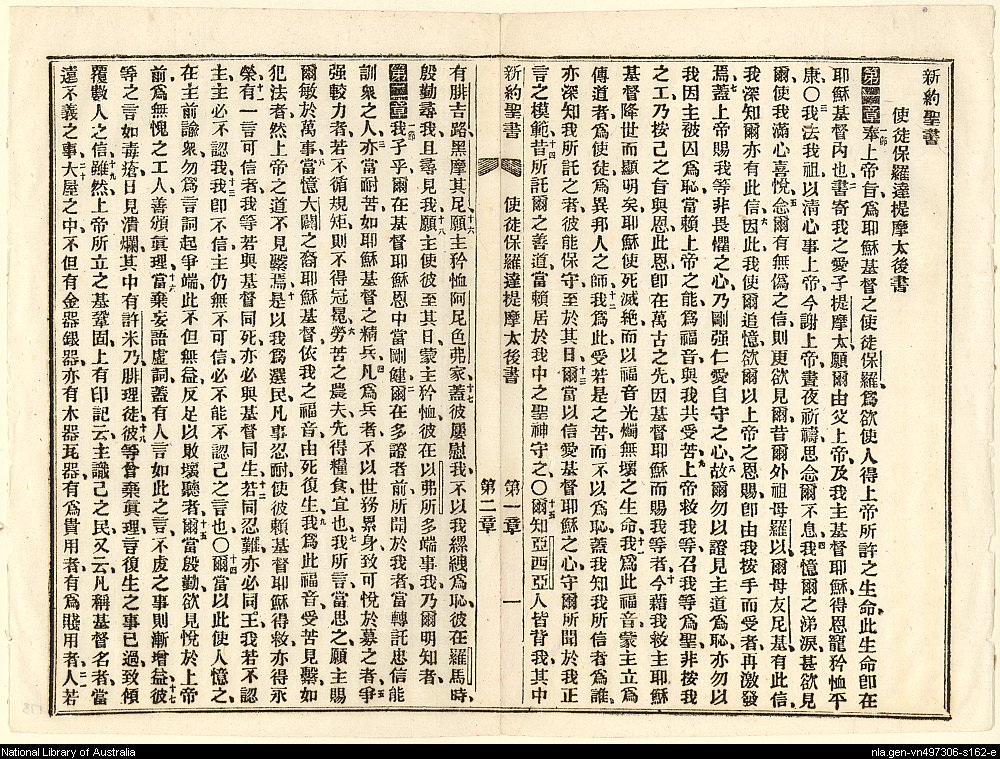 新約聖書
使徒保羅達提摩太後書
第一章 一節奉上帝旨爲耶穌基督之使徒保羅爲欲使人得上帝所許之生命此生命卽在
耶穌基督內也二書寄我之愛子提摩太願爾由父上帝及我主基督耶穌得恩寵矜恤平
康〇三我法我祖以清心事上帝今謝上帝晝夜祈禱思念爾不息四我憶爾之涕淚甚欲見
爾使我滿心喜悅五念爾有無偽之信則更欲見爾昔爾外祖母羅以爾母友尼基有此信
我深知爾亦有此信六因此我使爾追憶欲爾以上帝之恩賜卽由我按手而受者再激發
焉七蓋上帝賜我等非畏懼之心乃剛强仁愛自守之心八故爾勿以證見主道爲恥亦勿以
我因主被囚爲恥當賴上帝之能爲福音與我共受苦九上帝救我等召我等爲聖非按我
之工乃按己之旨與恩此恩卽在萬古之先因基督耶穌而賜我等者十今藉我救主耶穌
基督降世而顯明矣耶穌使死滅絶而以福音光燭無壞之生命十一我爲此福音蒙主立爲
傳道者爲使徒爲異邦人之師十二我爲此受若是之苦而不以爲恥蓋我知我所信者爲誰
亦深知我所託之者彼能保守至於其日十三爾當以信愛基督耶穌之心守爾所聞於我正
言之模範十四昔所託爾之善道當賴居於我中之聖神守之〇十五爾知亞西亞人皆背我其中
新約聖書 使徒保羅達提摩太後書 第一章 第二章 一
有腓吉路黑摩其尼十六願主矜恤阿尼色弗家蓋彼屢慰我不以我縲絏爲恥十七彼在羅馬時
殷勤尋我且尋見我十八願主使彼至其日蒙主矜恤彼在以弗所多端事我乃爾明知者
第二章 一節我子乎爾在基督耶穌恩中當剛健二爾在多證者前所聞於我者當轉託忠信能
訓衆之人三亦當耐苦如耶穌基督之精兵四凡爲兵者不以世務累身致可悅於募之者五爭
强較力者若不循規矩則不得冠冕六勞苦之農夫先得糧食宜也七我所言當思之願主賜
爾敏於萬事八當憶大闢之裔耶穌基督依我之福音由死復生九我爲此福音受苦見繫如
犯法者然上帝之道不見繫焉十是以我爲選民凡事忍耐使彼賴基督耶穌得救亦得永
榮十一有一言可信者我等若與基督同死亦必與基督同生十二若同忍難亦必同王我若不認
主主必不認我十三我卽不信主仍無不可信必不能不認己之言也〇十四爾當以此使人憶之
在主前諭衆勿爲言詞起爭端此不但無益反足以敗壞聽者十五爾當殷勤欲見悅於上帝
前爲無愧之工人善頒眞理十六當棄妄語虛詞蓋有人言如此之言不虔之事則漸增益十七彼
等之言如毒瘡日見潰爛其中有許米乃腓理徒十八彼等曾棄眞理言復生之事已過致傾
覆數人之信十九雖然上帝所立之基鞏固上有印記云主識己之民又云凡稱基督名者當
遠不義之事二十大屋之中不但有金器銀器亦有木器瓦器有爲貴用者有爲賤用者二一人若
National Library of Australia
nla.gen-vn497306-s162-e